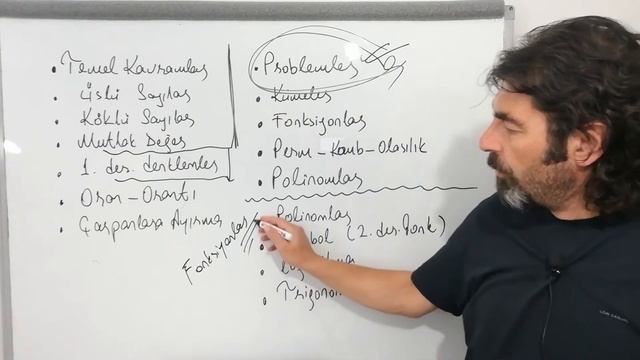 Temel Kavramlar
Üslü Sayılar
Köklü Sayılar
Mutlak Değer
1. der. denklemler
Oran - Orantı
Çarpanlara Ayırma
Problemler
Kümeler
Fonksiyonlar
Perm - Komb - Olasılık
Polinomlar
Fonksiyonlar
Polinomlar
(2. der. fonk)